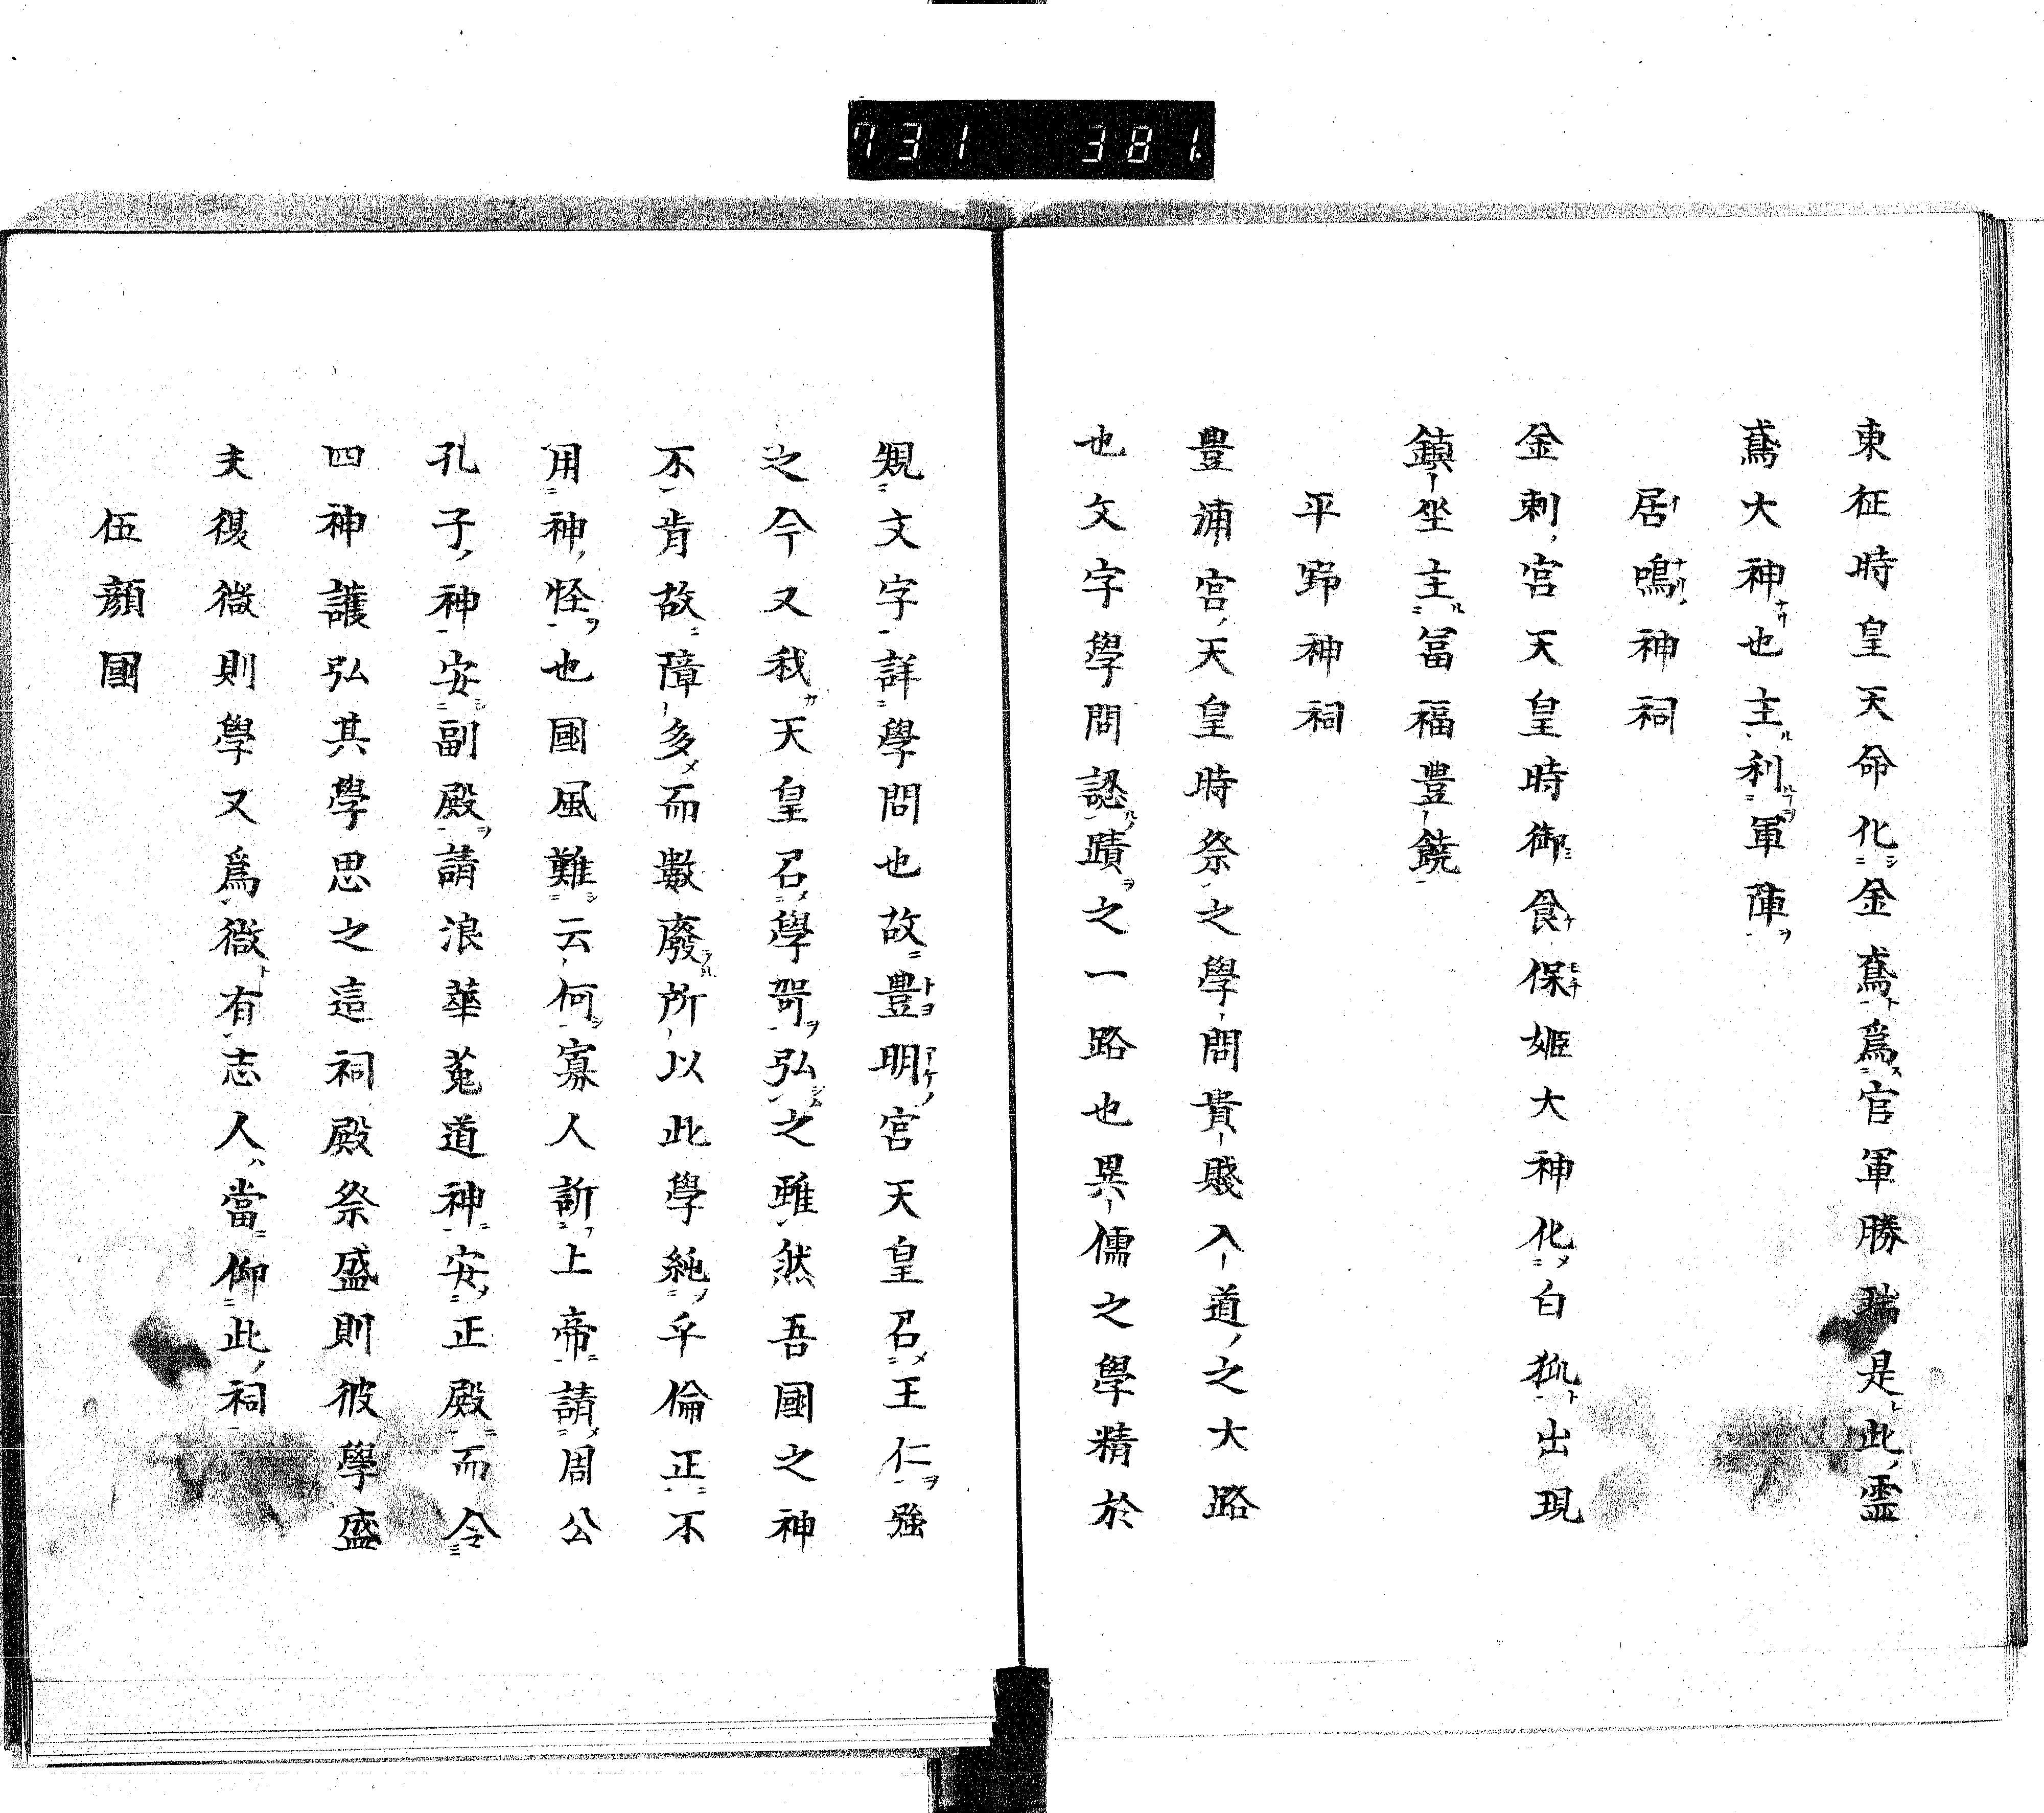 731 381
東征時皇天命化金鳶爲官軍勝瑞是此霊
鳶大神也主利軍陣
居鳴神祠
金刺宮天皇時御食保姬大神化白狐出現
鎮坐主冨福豊饒
平野神祠
豊浦宮天皇時祭之學問貴賤入道之大路
也文字學問認蹟之一路也異儒之學精於
規文字詳學問也故豊明宮天皇召王仁強
之今又我天皇召學哿弘之雖然吾國之神
不肯故障多而數廢所以此學純乎倫正不
用神怪也國風難云何寡人訢上帝請周公
孔子神安副殿請浪華菟道神安正殿而令
四神護弘其學思之這祠殿祭盛則彼學盛
夫復微則學又爲微有志人當仰此祠
伍顔國